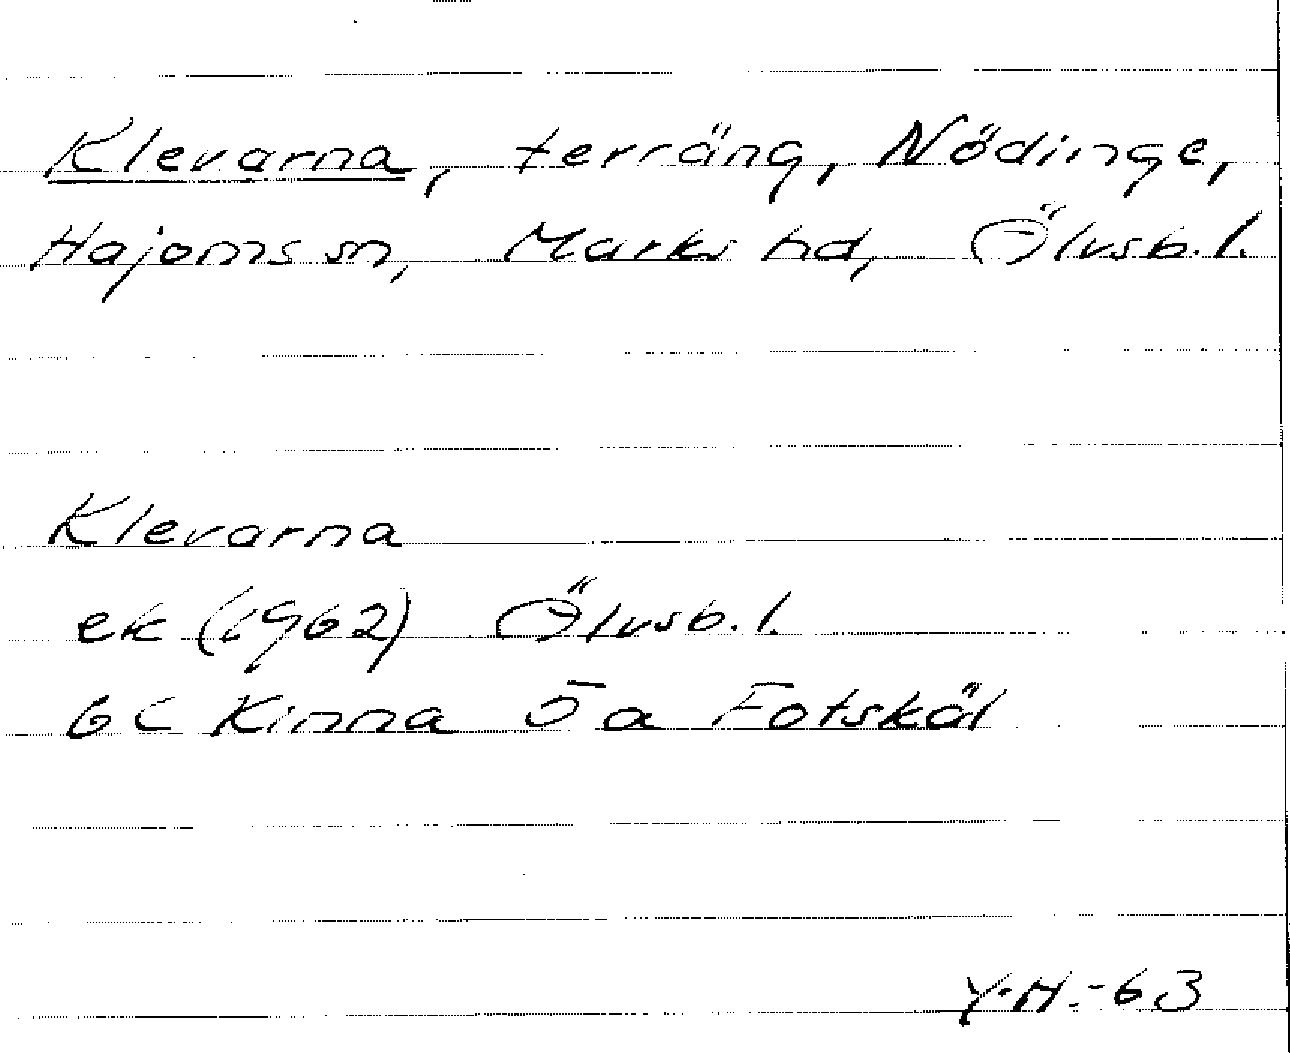 Klevarna, terräng, Nödinge,
Hajoms sn, Marks hd, Älvsb. l.
Klevarna
ek (1962) Älvsb. l.
6C Kinna 5a Fotskäl
Y.H.-63